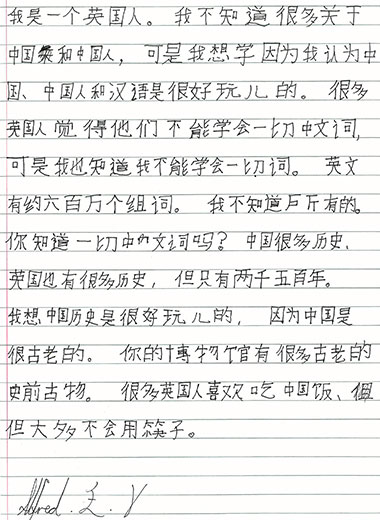 我是一个英国人。我不知道很多关于
中国和中国人，可是我想学因为我认为中
国、中国人和汉语是很好玩儿的。很多
英国人觉得他们不能学会一切中文词，
可是我也知道我不能学会一切词。英文
有约六百万个组词。我不知道所有的。
你知道一切中文词吗？中国很多历史、
英国也有很多历史，但只有两千五百年。
我想中国历史是很好玩儿的，因为中国是
很古老的。你的博物馆有很多古老的
史前古物。很多英国人喜欢吃中国饭、
但大多不会用筷子。
Alfred. E. V